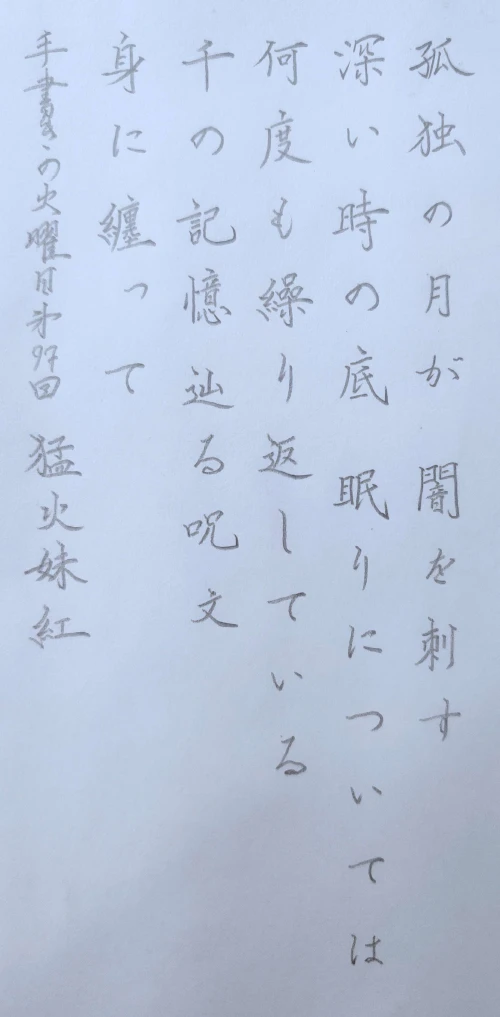 孤独の月が 闇を刺す
深い時の底 眠りについては
何度も繰り返している
千の記憶辿る呪文
身に纏って
手書きの火曜日第97回 猛火妹紅